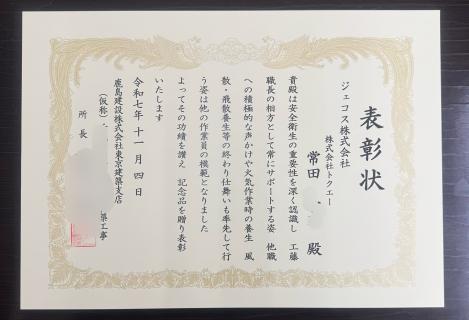 表彰状
ジェコス株式会社
株式会社トクエー
常田 殿
貴殿は安全衛生の重要性を深く認識し 工藤
職長の相方として常にサポートする姿 他職
への積極的な声かけや火気作業時の養生 風
散・飛散養生等の終わり仕舞いも率先して行
う姿は他の作業員の模範となりました
よってその功績を讃え 記念品を贈り表彰
いたします
令和七年 十一月 四日
鹿島建設株式会社東京建築支店
(仮称) 築工事
所長